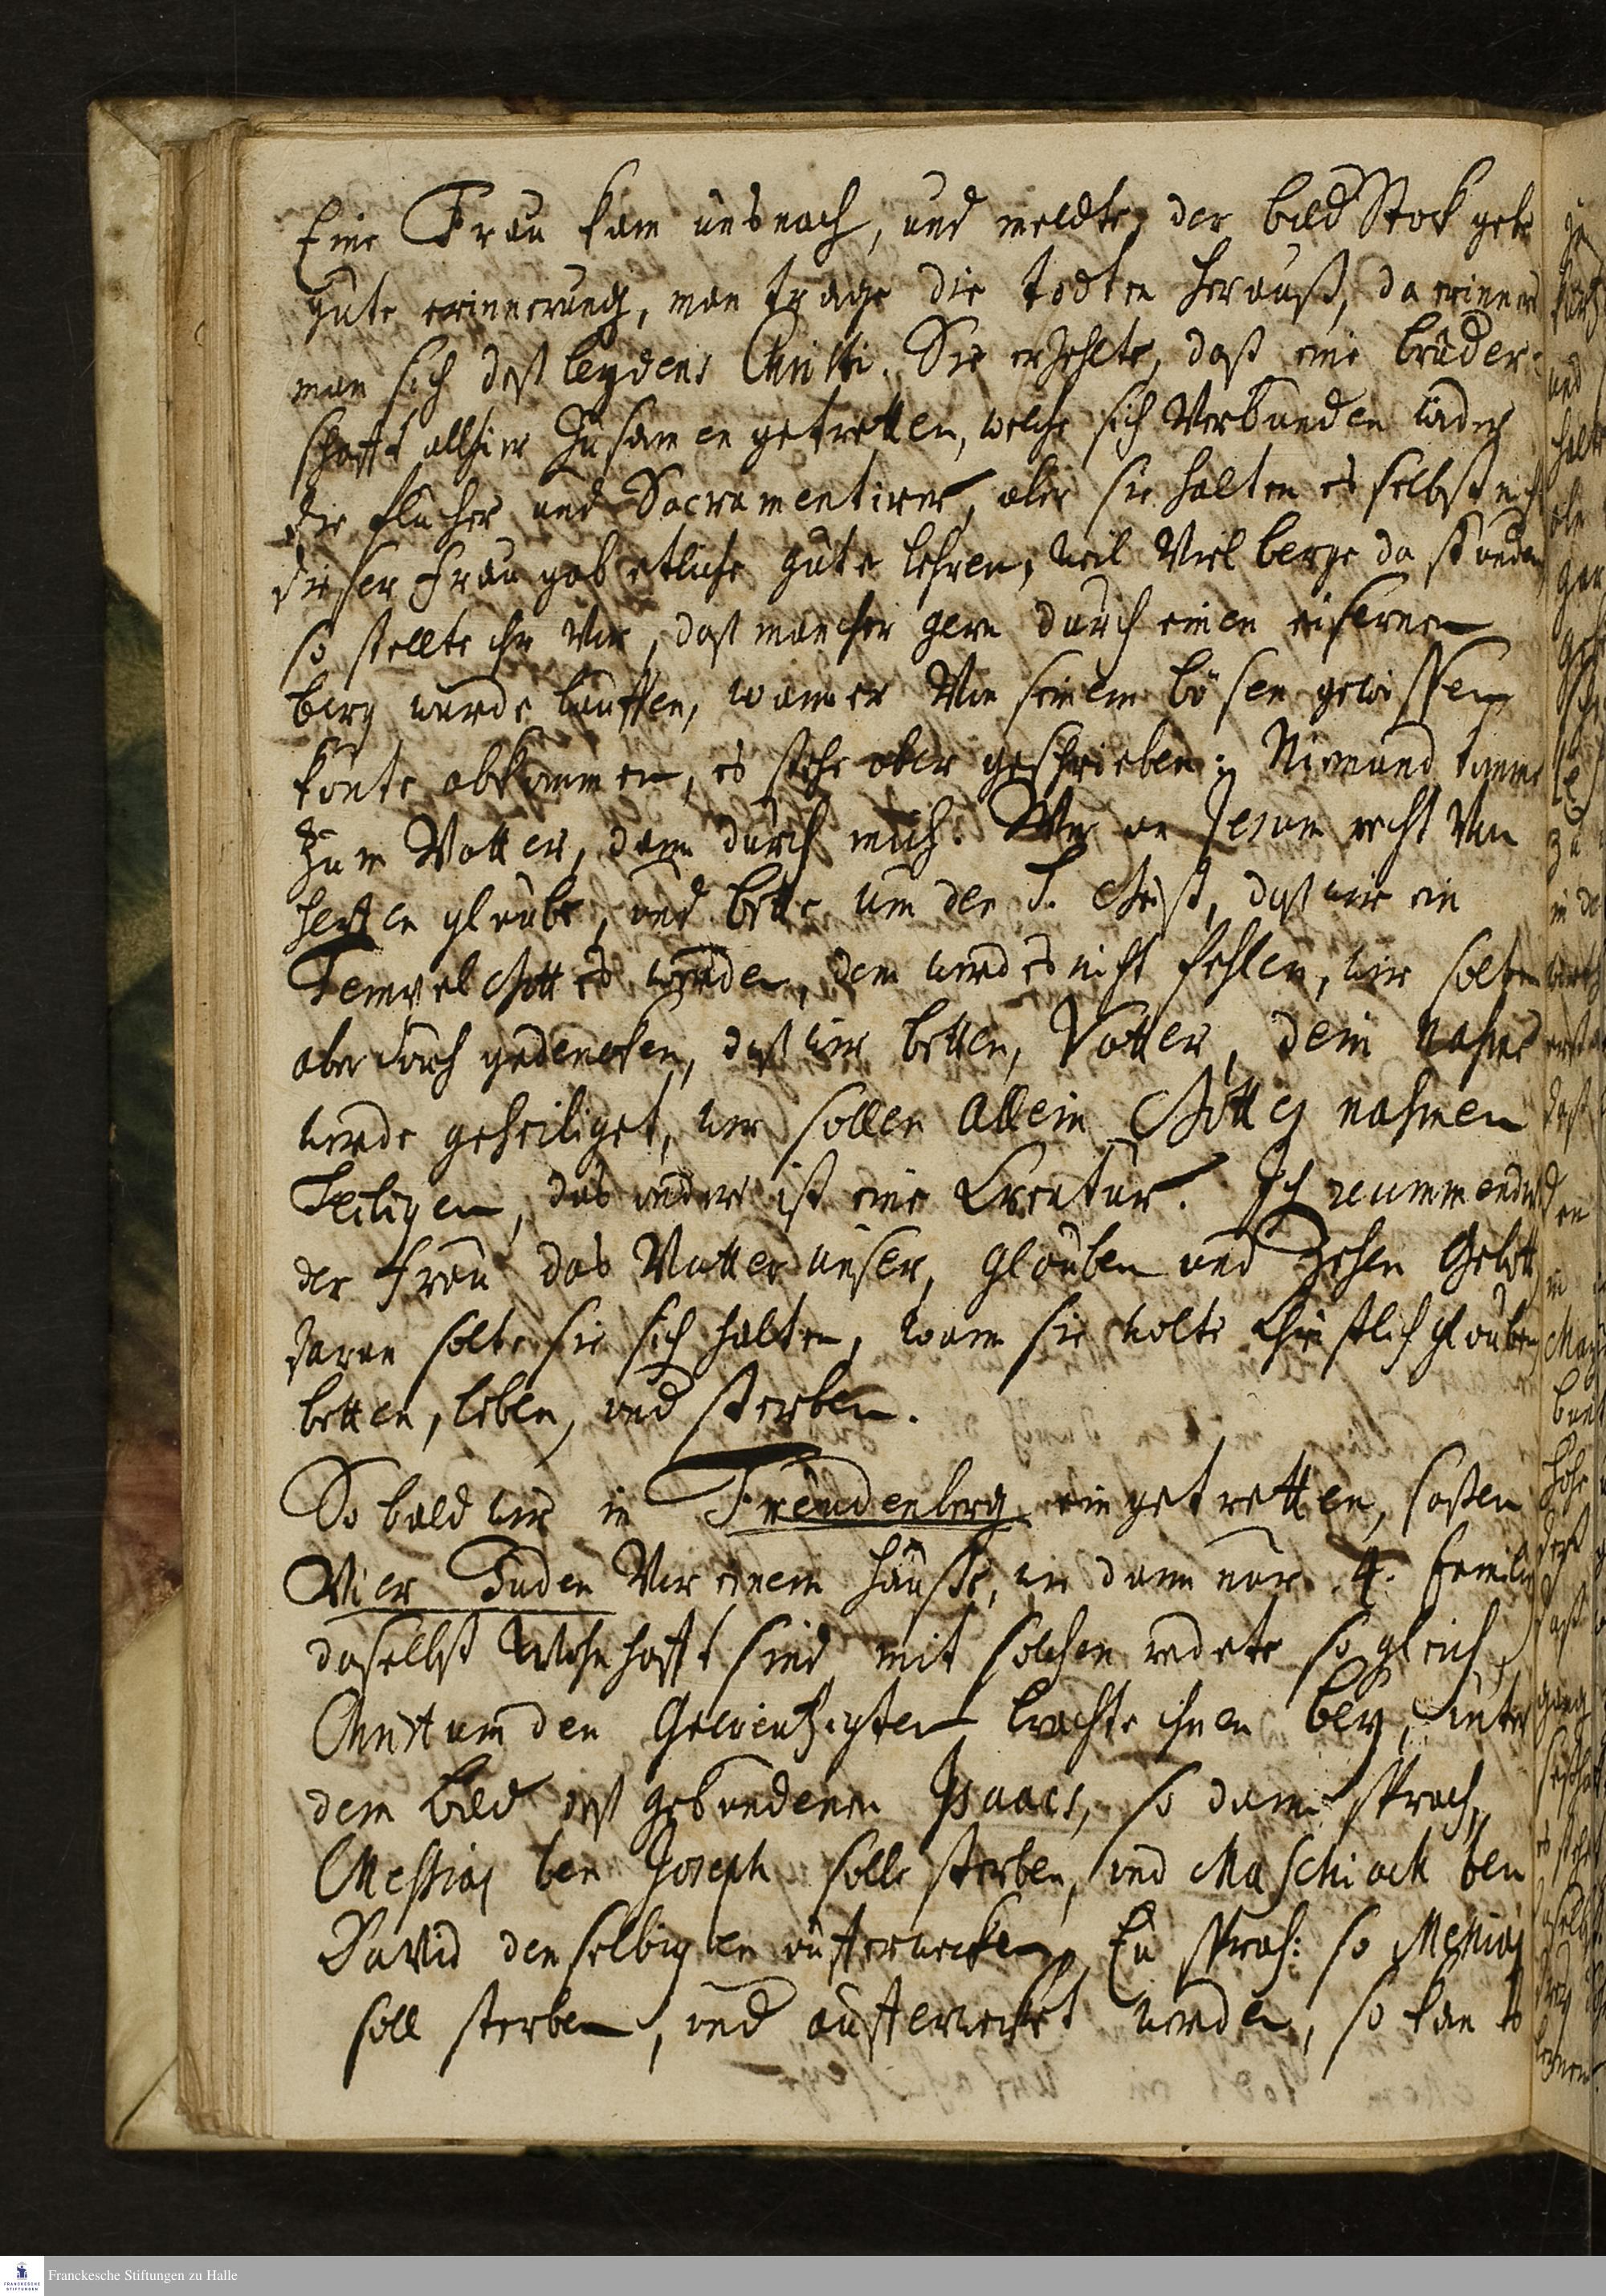 Eine Frau kam uns nach, und meldte, der bildStock gebe
gute erinnerung, man trage die todten herauß, da erinnere
man sich deß leydens Christi. Sie erzehlte, daß eine brüder-
schafft allhier zusamen getretten, welche sich Verbunden wider
die flucher und Sacramentirer, aber sie halten es selbst nicht
dieser Frau gab etliche gute lehren, weil Viel berge da stunden
so stellte ihr Vor, daß mancher gern durch einen eisernen
berg wurde lauffen, wann er Von seinem bösen gewissen
könte abkommen, es stehe aber geschrieben: Niemand komme
zum Vatter, dann durch mich. Wer an Jesum recht Von
hertzen glaube, und bette um den H. Geist, daß wir ein
Tempel Gottes werden, dem werd es nicht fehlen, wir solten
aber doch gedencken, daß wir betten, Vatter, dein Nahme
werde geheiliget, wir sollen allein Gottes nahmen
heiligen, das andere ist eine Creatur. Ich recummendirte
der Frau das Vatter unser, Glauben und Zehen Gebott
daran solte sie sich halten, wann sie wolte Christlich glauben
betten, leben, und sterben.
So bald wir in Freudenberg eingetretten, saßen
Vier Juden Vor einem hauße, wie dann nur 4. Familien
daselbst Wohnhafft sind, mit solchen redete so gleich,
Christum den Gecreutzigten brachte ihnen bey, unter
dem bild deß gebundenen Isaacs, so dann sprach,
Messias ben Joseph solle sterben, und Maschiach ben
David denselbigen aufferwecken, Ey sprach: so Messias
soll sterben, und aufferweckt werden, so kan es
Franckesche Stiftungen zu Halle